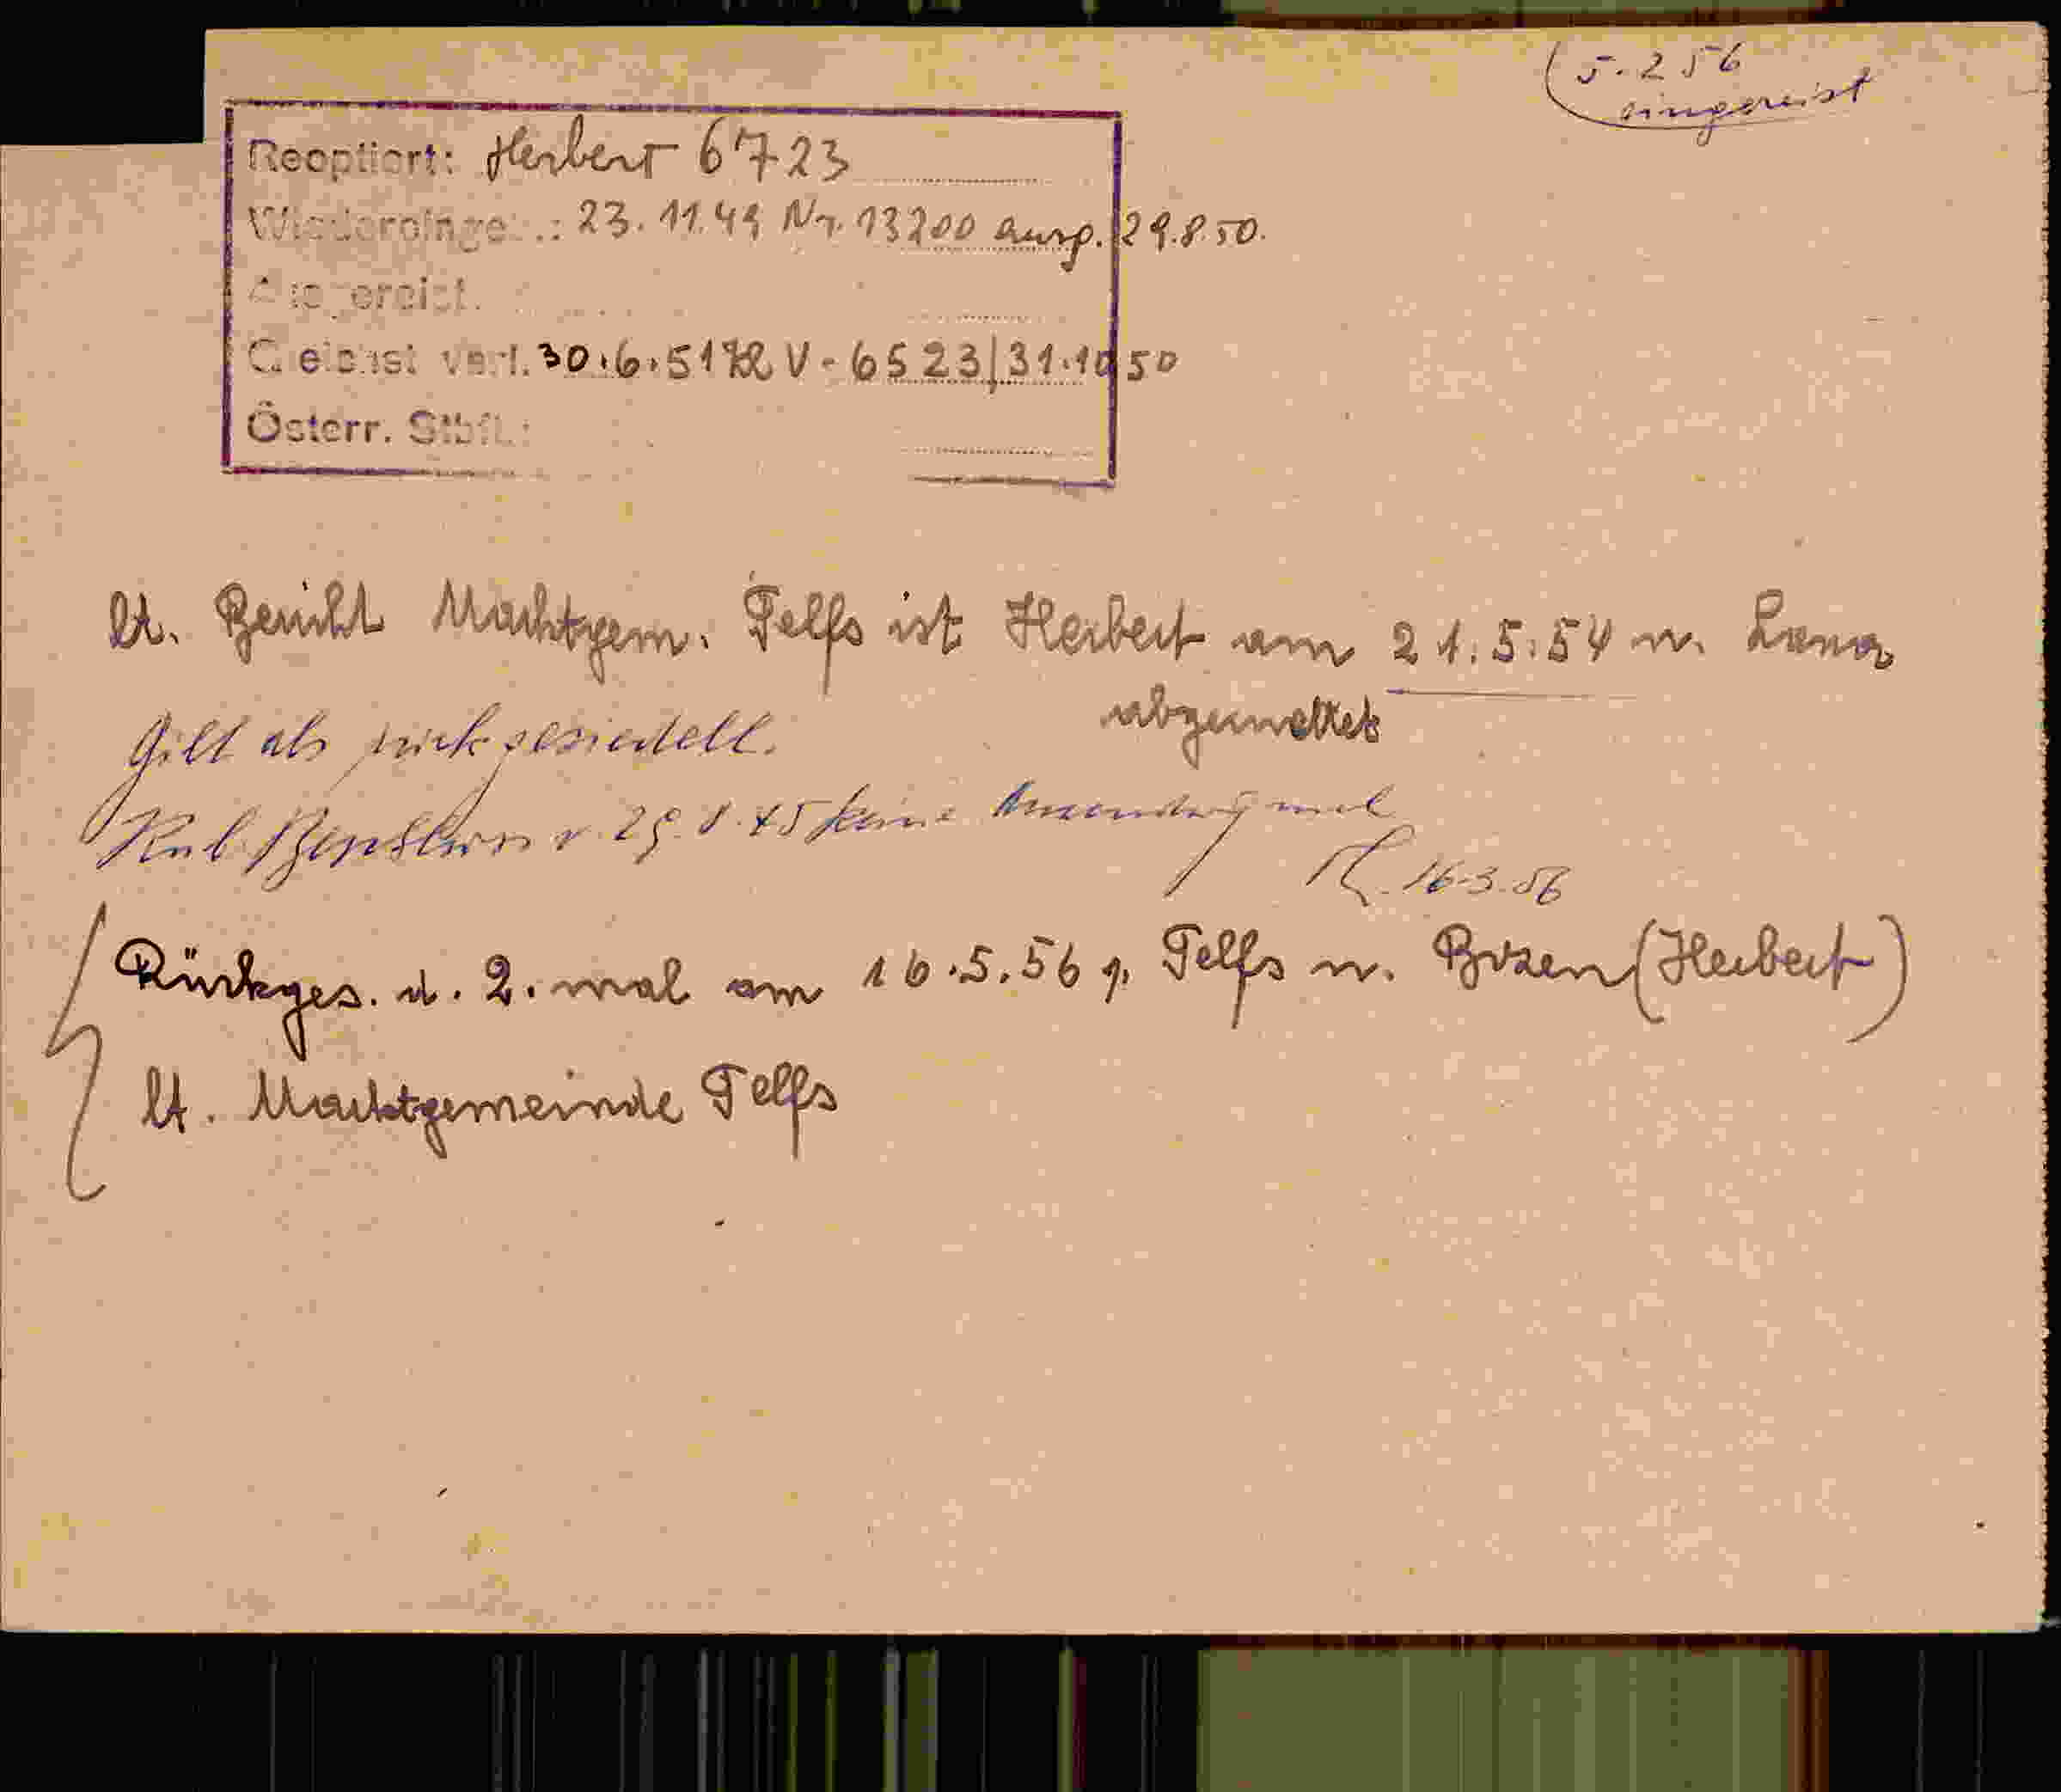 5. 2 56
eingereist
Reoptiert: Herbert 6723
Wiedereinge...: 23. 11. 49 Nr. 13200 ausg. 29.8.50.
Ausgereist:
Gleichst verl. 30.6.51 V-6523/31.10.50
Österr. Stbft.:
lt. Bericht Marktgem. Telfs ist Herbert am 21.5.54 n. Lana
abgemeldet
Gilt als rückgesiedelt.
v. 29. 8. 45 keine Anwendung mehr
16.3.56
Rückges. d. 2. mal am 16.5.56 v. Telfs n. Bozen (Herbert)
lt. Marktgemeinde Telfs